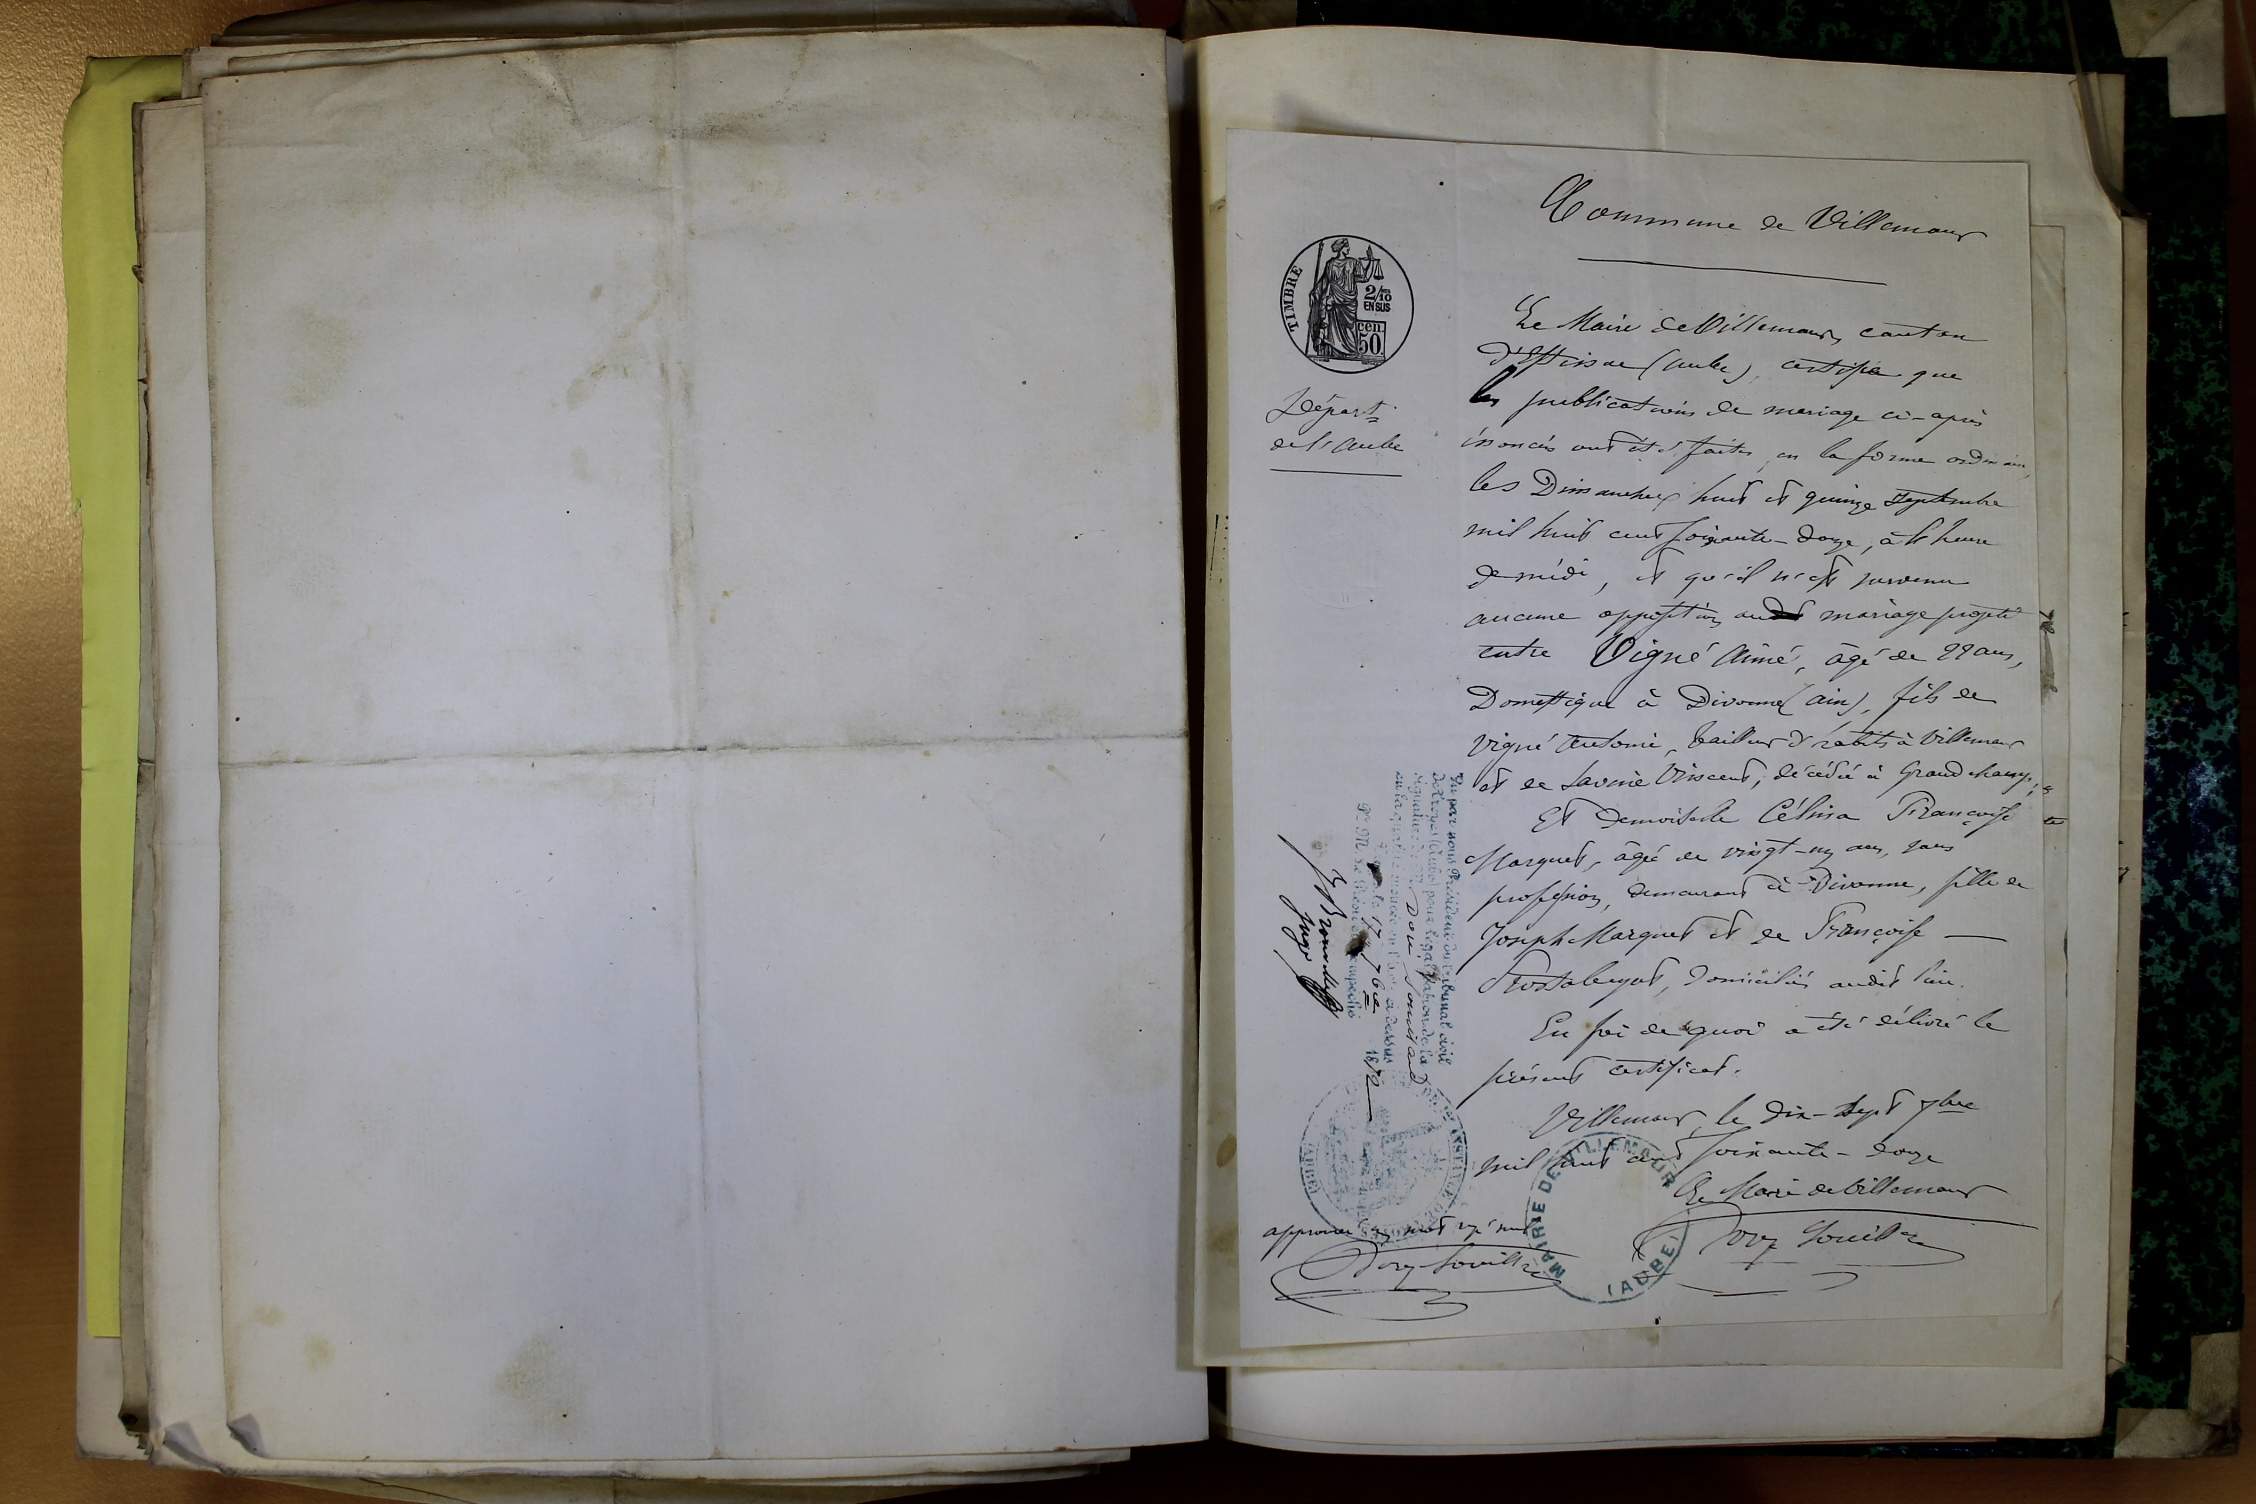 Commune de Villemaur
TIMBRE
2/10
EN SUS
cen.
50.
Départ.t
de l'aube
Le Maire de Villemaur, canton
d'Estissac (aube), certifie que
les publications de mariage ci-après
énoncées ont été faites, en la forme ordinaire,
les Dimanches huit et quinze septembre
mil huit cent soixante-douze, à l'heure
de midi, et qu'il n'est survenu
aucune opposition au mariage projeté
entre Vigné Aimé, âgé de 22 ans,
Domestique à Divonne (ain), fils de
Vigné Antoine, tailleur d'habits à Villemaur
et de Savine Vincent, décédée à Grandchamp;
Et Demoiselle Célina Françoise
Marquet, âgée de vingt-un ans, sans
profession, demeurant à Divonne, fille de
Joseph Marquet et de Françoise
domiciliés audit lieu.
En foi de quoi a été délivré le
présent certificat.
Villemaur, le dix-sept 7bre
mil huit cent soixante-douze
Le Maire de Villemaur
MAIRIE DE VILLEMAUR
(AUBE)
approuvé un mot rayé nul
Vu par nous Président du tribunal civil
de Troyes (Aube) pour légalisation de la
signature de M
apposée ci-dessus
le 17 7bre 1872
P.r M. le Président empêché
Juge